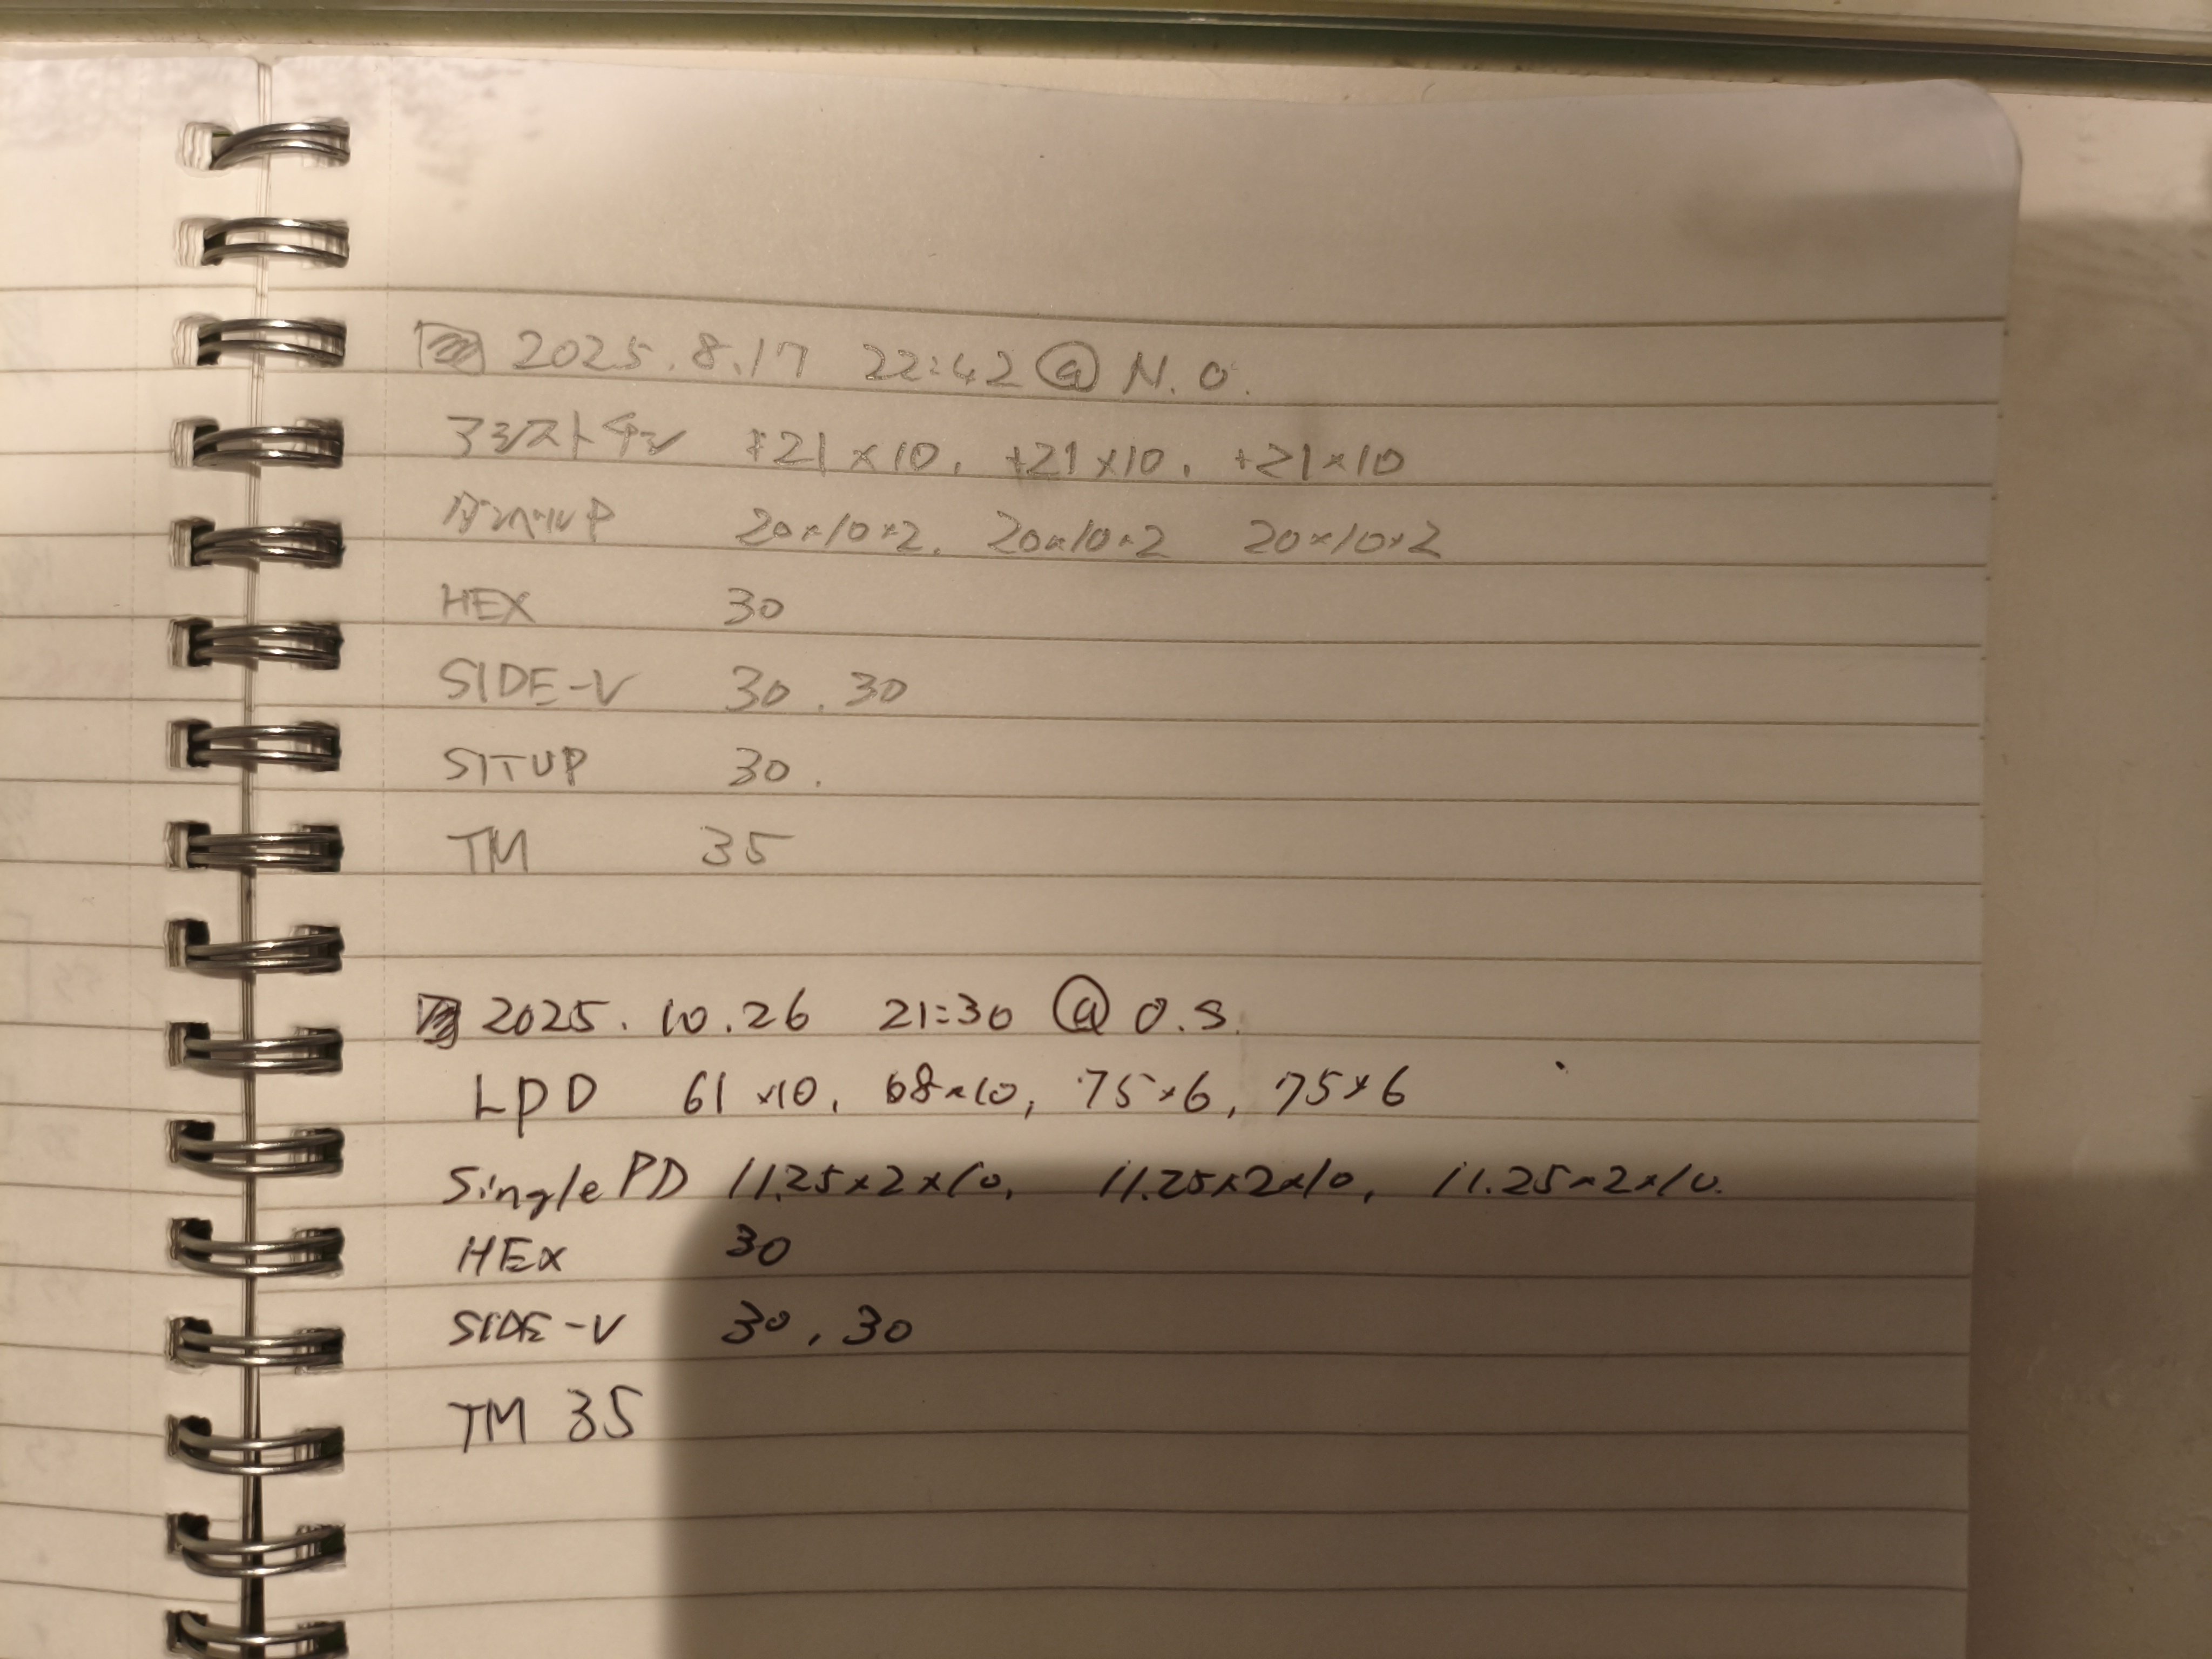 2025.8.17 22:42 @ N.O.
アシストチン +21×10, +21×10, +21×10
ダンベルP 20×10×2, 20×10×2 20×10×2
HEX 30
SIDE-V 30. 30
SITUP 30.
TM 35
2025. 10.26 21:30 @ O.S.
LPD 61×10, 68×10, 75×6, 75×6
Single PD 11.25×2×10, 11.25×2×10, 11.25×2×10.
HEX 30
SIDE-V 30, 30
TM 35